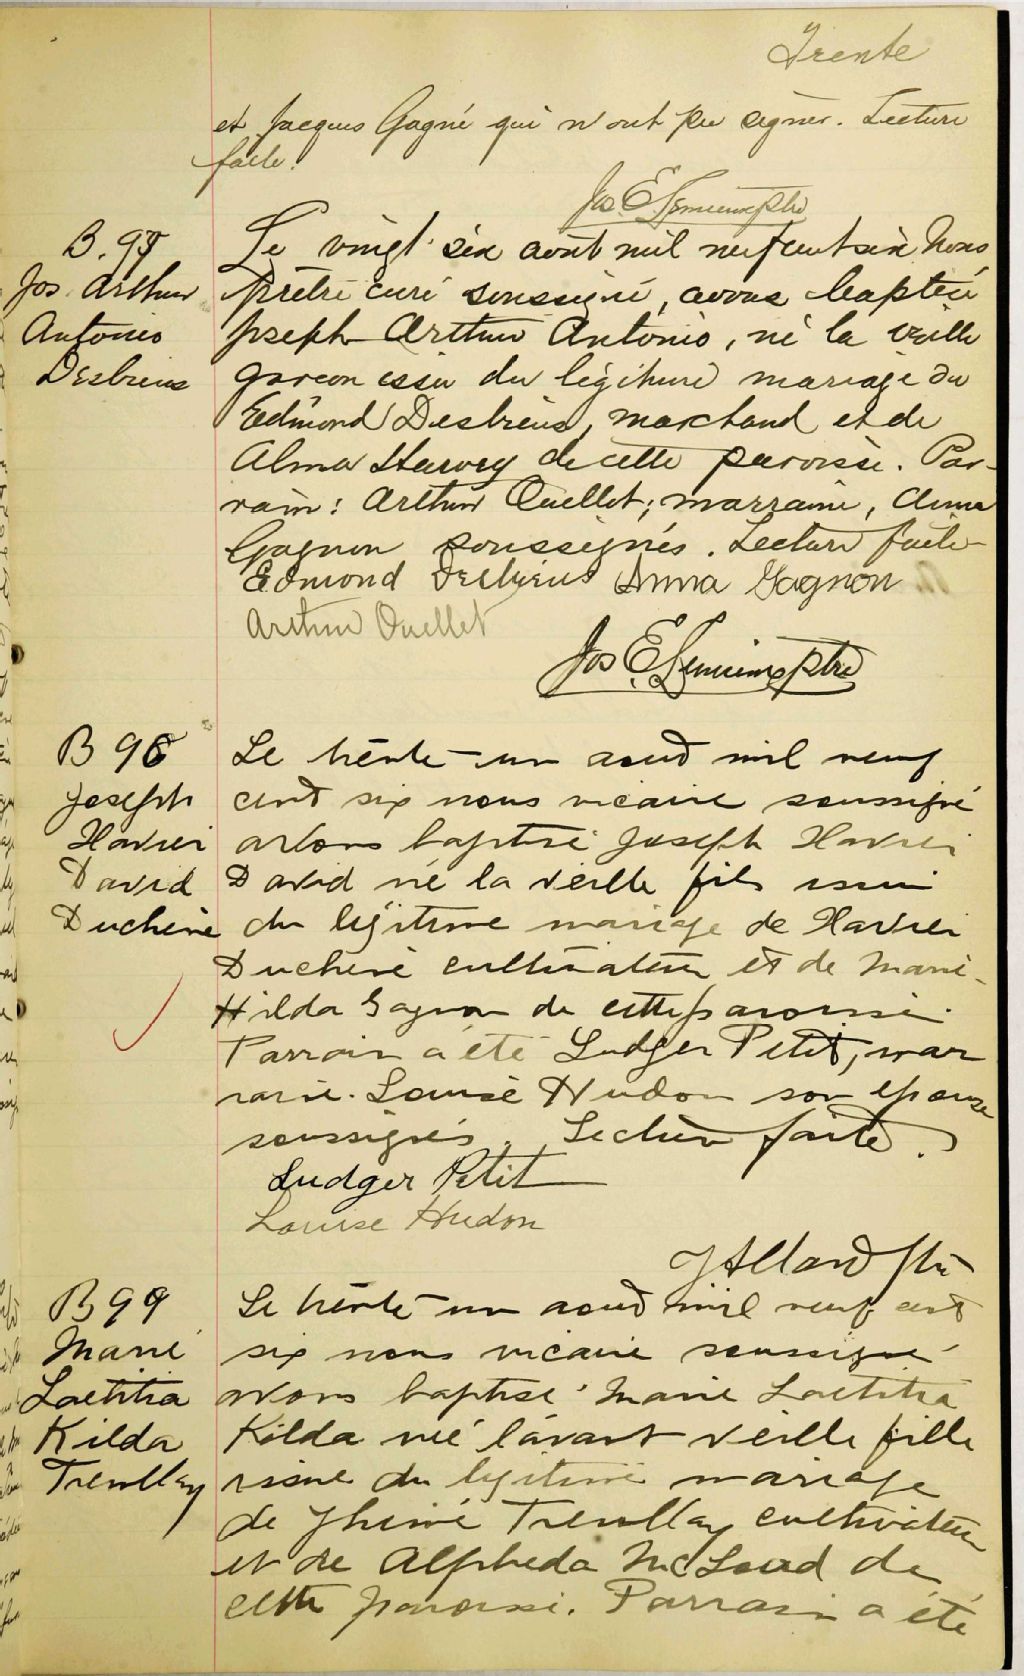 Trente
et Jacques Gagné qui n'ont pu signer. Lecture
faite.
Jos E. Lemieux ptre
B. 97
Jos. Arthur
Antonio
Desbiens
Le vingt-six août mil neuf cent six Nous
prêtre curé soussigné, avons baptisé
Joseph Arthur Antonio, né la veille
garçon issu du légitime mariage de
Edmond Desbiens, marchand et de
Alma Harvey de cette paroisse. Par-
rain: Arthur Ouellet; marraine, Anna
Gagnon soussignés. Lecture faite
Edmond Desbiens Anna Gagnon
Arthur Ouellet
Jos E. Lemieux ptre
B 98
Joseph
Xavier
David
Duchene
Le trente-un aout mil neuf
cent six nous vicaire soussigné
avons baptisé Joseph Xavier
David né la veille fils issu
du légitime mariage de Xavier
Duchene cultivateur et de Marie-
Hilda Gagnon de cette paroisse.
Parrain a été Ludger Petit, mar
raine. Louise Hudon son epouse
soussignés. Lecture faite.
Ludger Petit
Louise Hudon
J Allard Ptre
B 99
Marie
Laetitia
Kilda
Tremblay
Le trente-un aout mil neuf cent
six nous vicaire soussigné
avons baptisé Marie Laetitia
Kilda née l'avant veille fille
issue du légitime mariage
de Tremblay cultivateur
et de Alpheda McLeod de
cette paroisse. Parrain a été